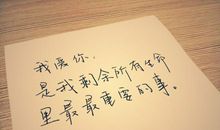 我陪你，
是我剩余所有生命
里最最重要的事。